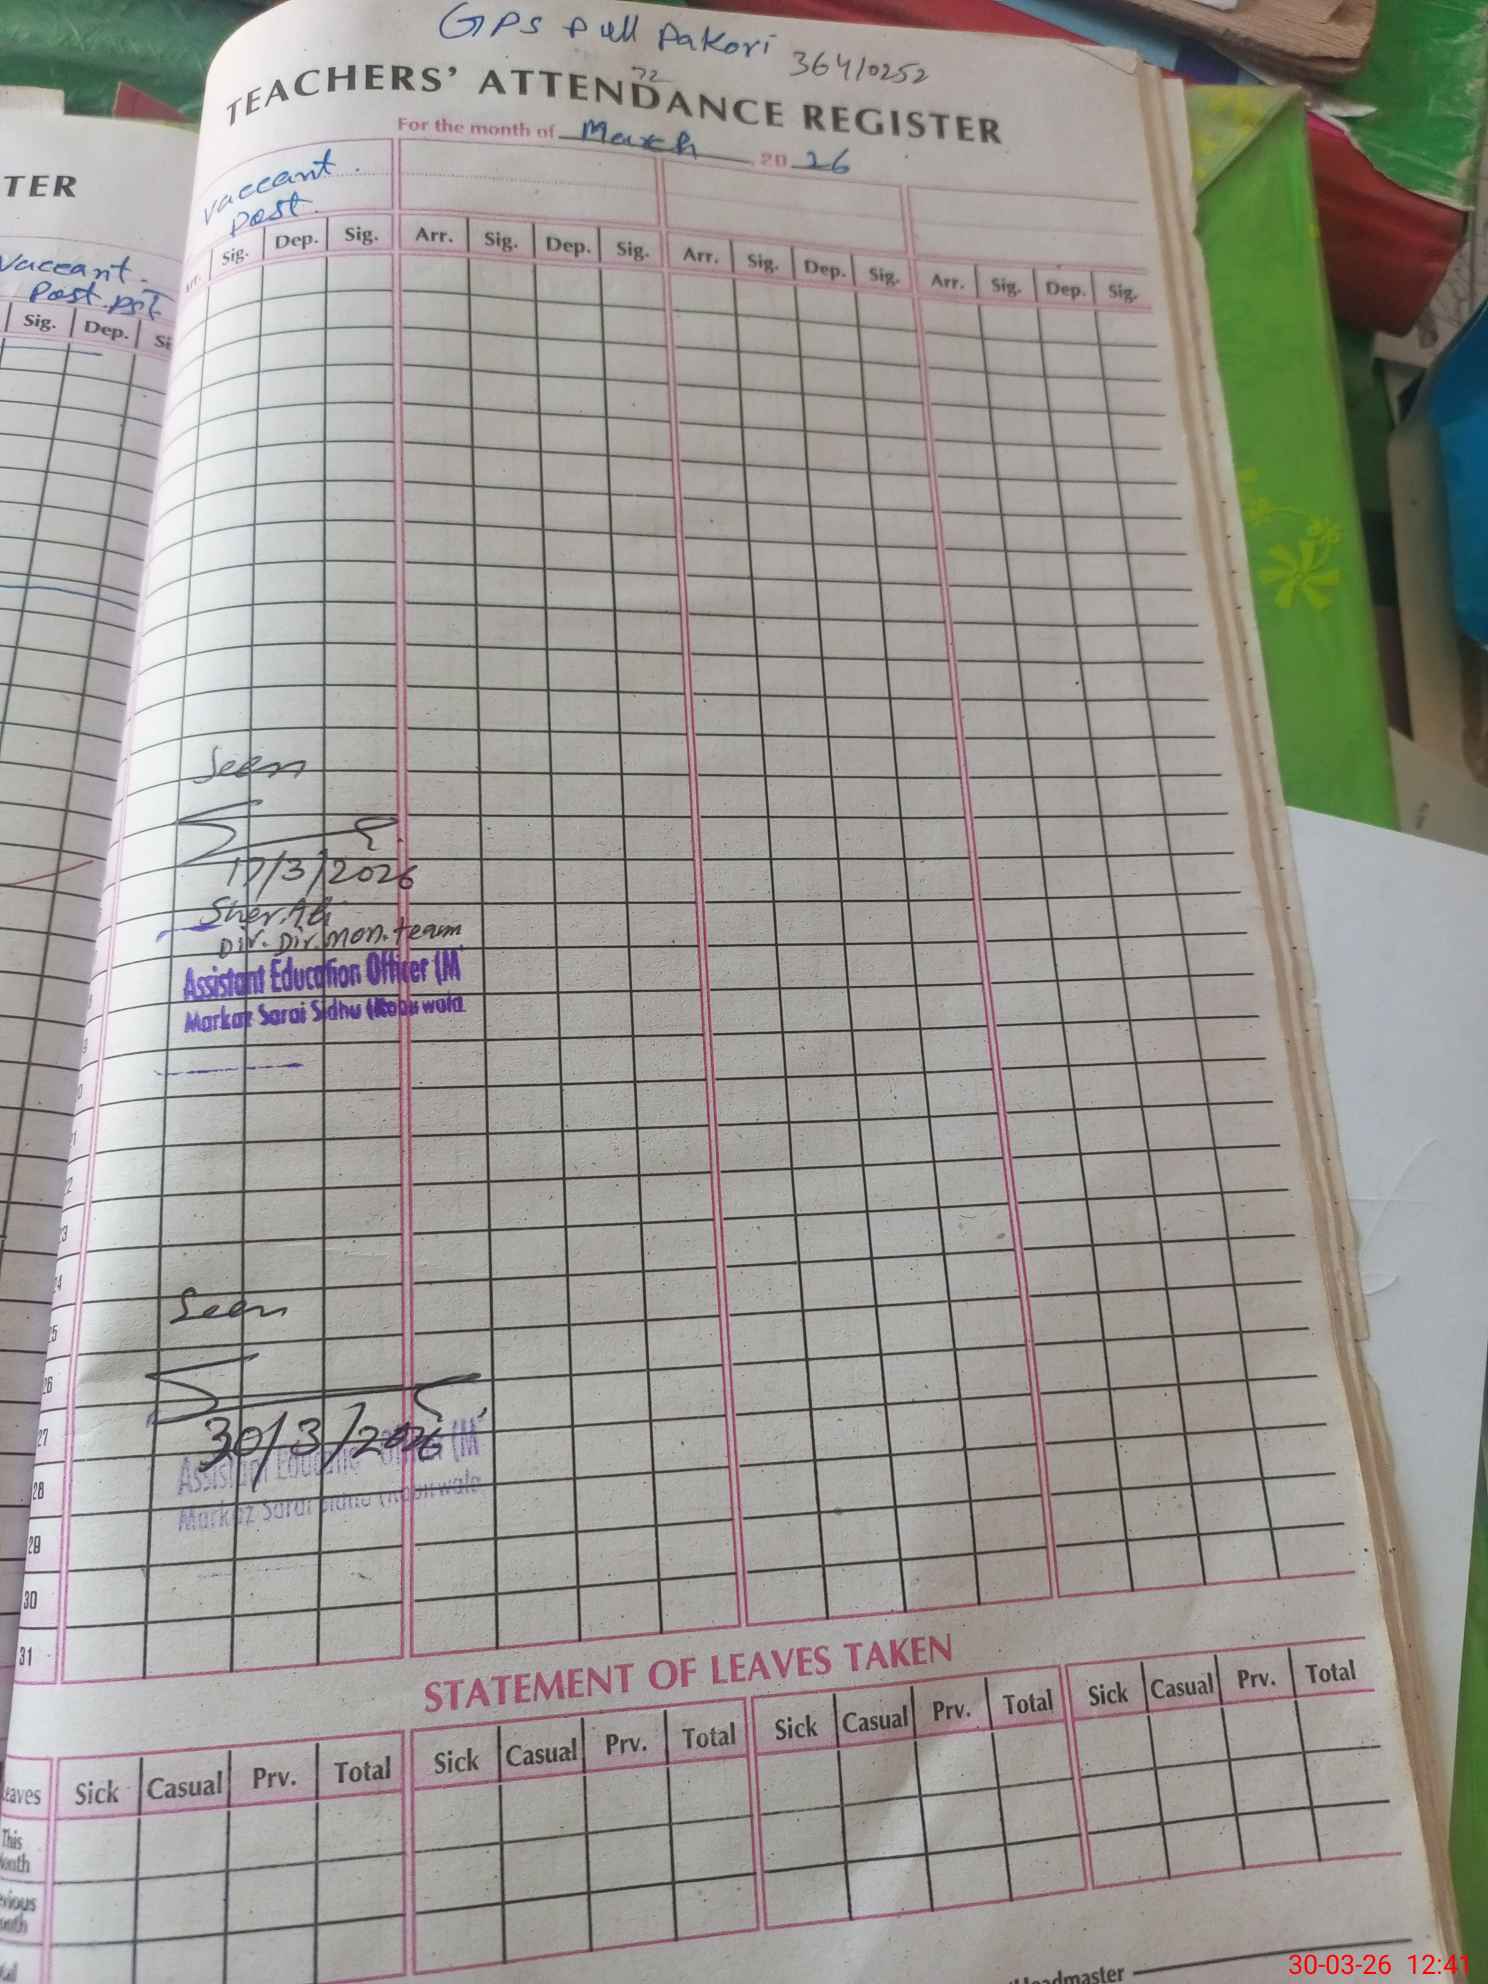 GPS pull pakori 36410252
72
TEACHERS' ATTENDANCE REGISTER
For the month of March 2026
TER
vaccant
post
vaccant
post pst
Sig. Dep. Sig. Arr. Sig. Dep. Sig. Arr. Sig. Dep. Sig. Arr. Sig. Dep. Sig.
Sig. Dep.
Seen
17/3/2026
Sher Ali
Div. Dir. Mon. team
Assistant Education Officer (M
Markaz Sarai Sidhu (Kabirwala
22
23
24
Seen
25
26
30/3/2026
27
Assistant Education Officer (M
28
Markaz Sarai Sidhu (Kabirwala
29
30
31
STATEMENT OF LEAVES TAKEN
Leaves Sick Casual Prv. Total Sick Casual Prv. Total Sick Casual Prv. Total Sick Casual Prv. Total
This
Month
Previous
Month
Total
Headmaster
30-03-26 12:41